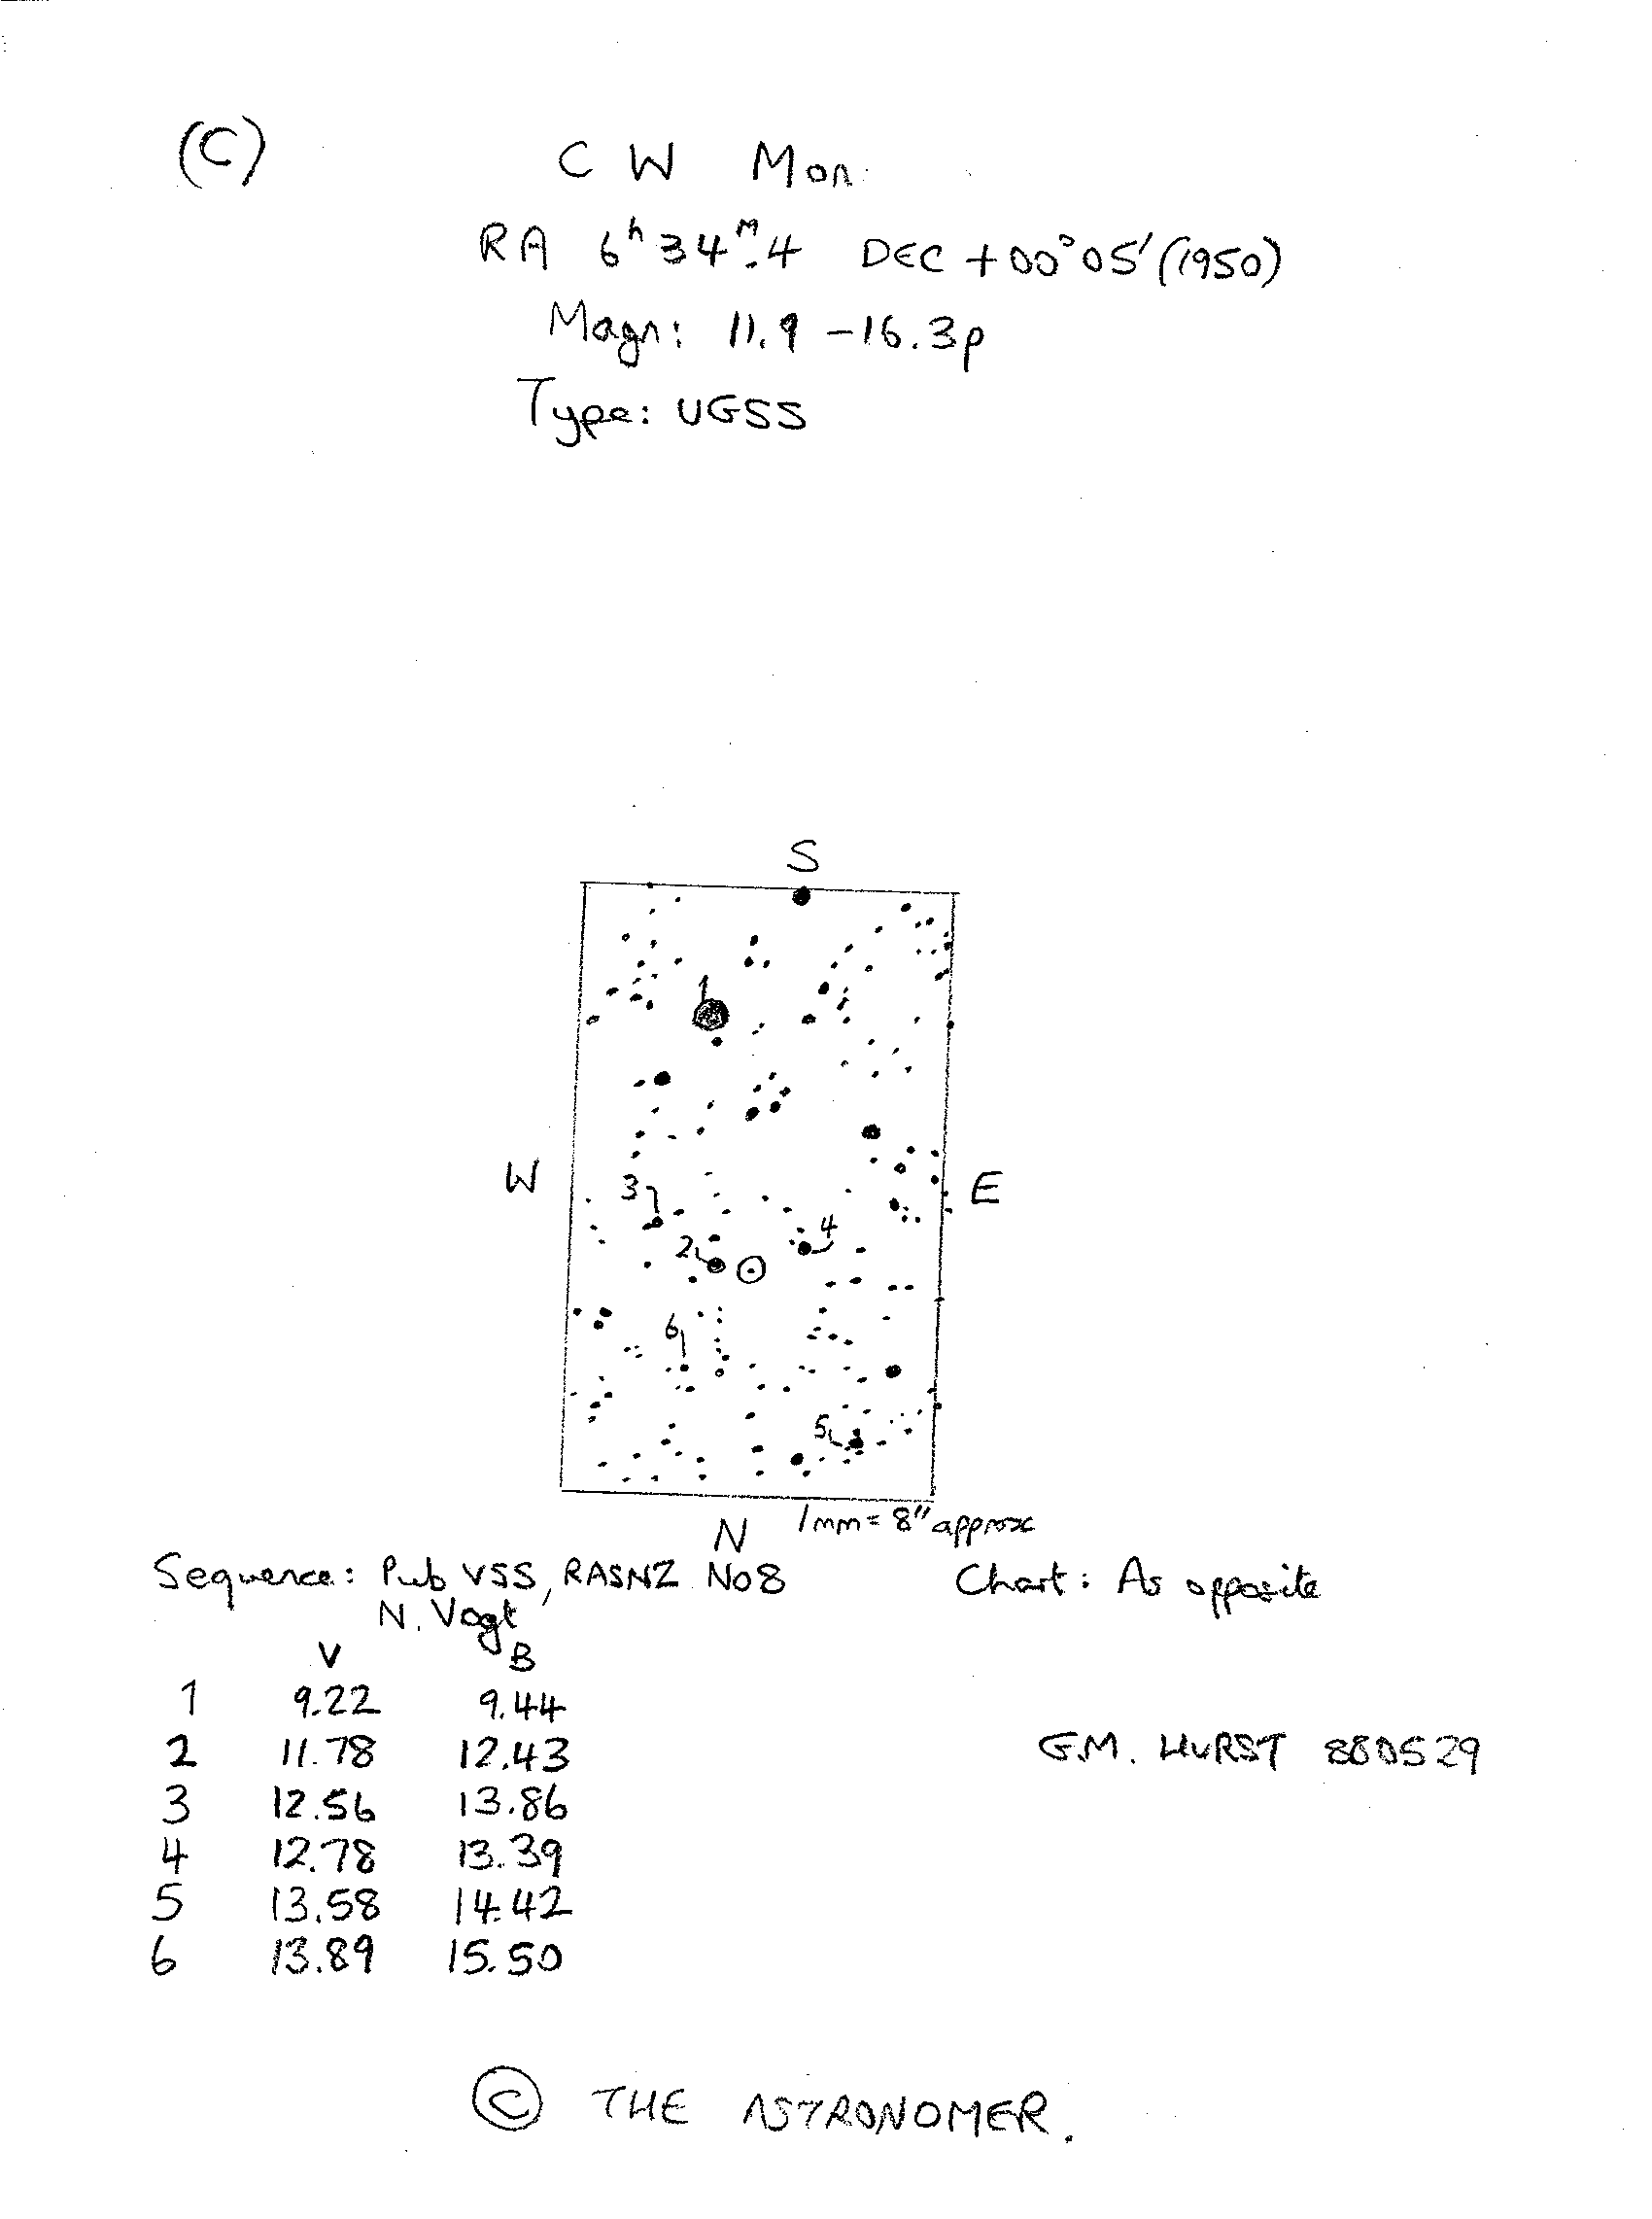 (C)
CW Mon
RA 6ʰ34ᵐ.4 DEC +00°05′(1950)
Magn: 11.9 -16.3p
Type: UGSS
S
1
W
E
3
4
2
6
5
N
1mm = 8" approx
Sequence: Pub VSS, RASNZ No8
N. Vogt
Chart: As opposite
V B
1 9.22 9.44
2 11.78 12.43
3 12.56 13.86
4 12.78 13.39
5 13.58 14.42
6 13.89 15.50
G.M. HURST 880529
© THE ASTRONOMER.